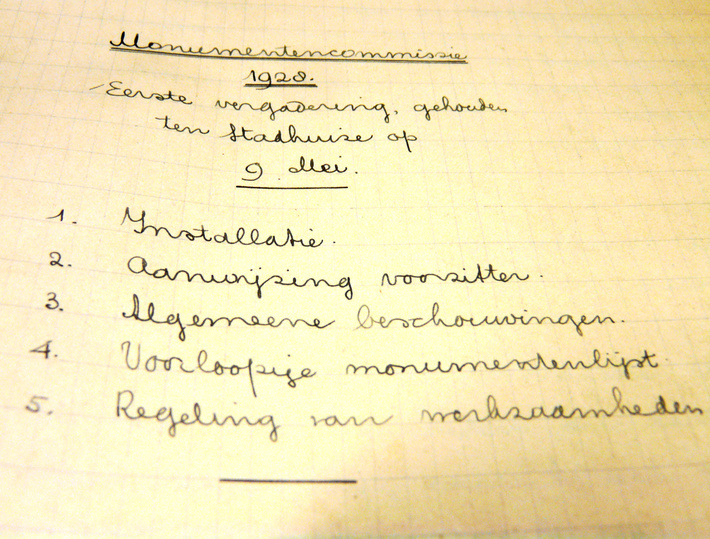 Monumentencommissie
1928.
Eerste vergadering, gehouden
ten Stadhuize op
9 Mei.
1. Installatie.
2. Aanwijzing voorzitter.
3. Algemeene beschouwingen.
4. Voorloopige monumentenlijst.
5. Regeling van werkzaamheden